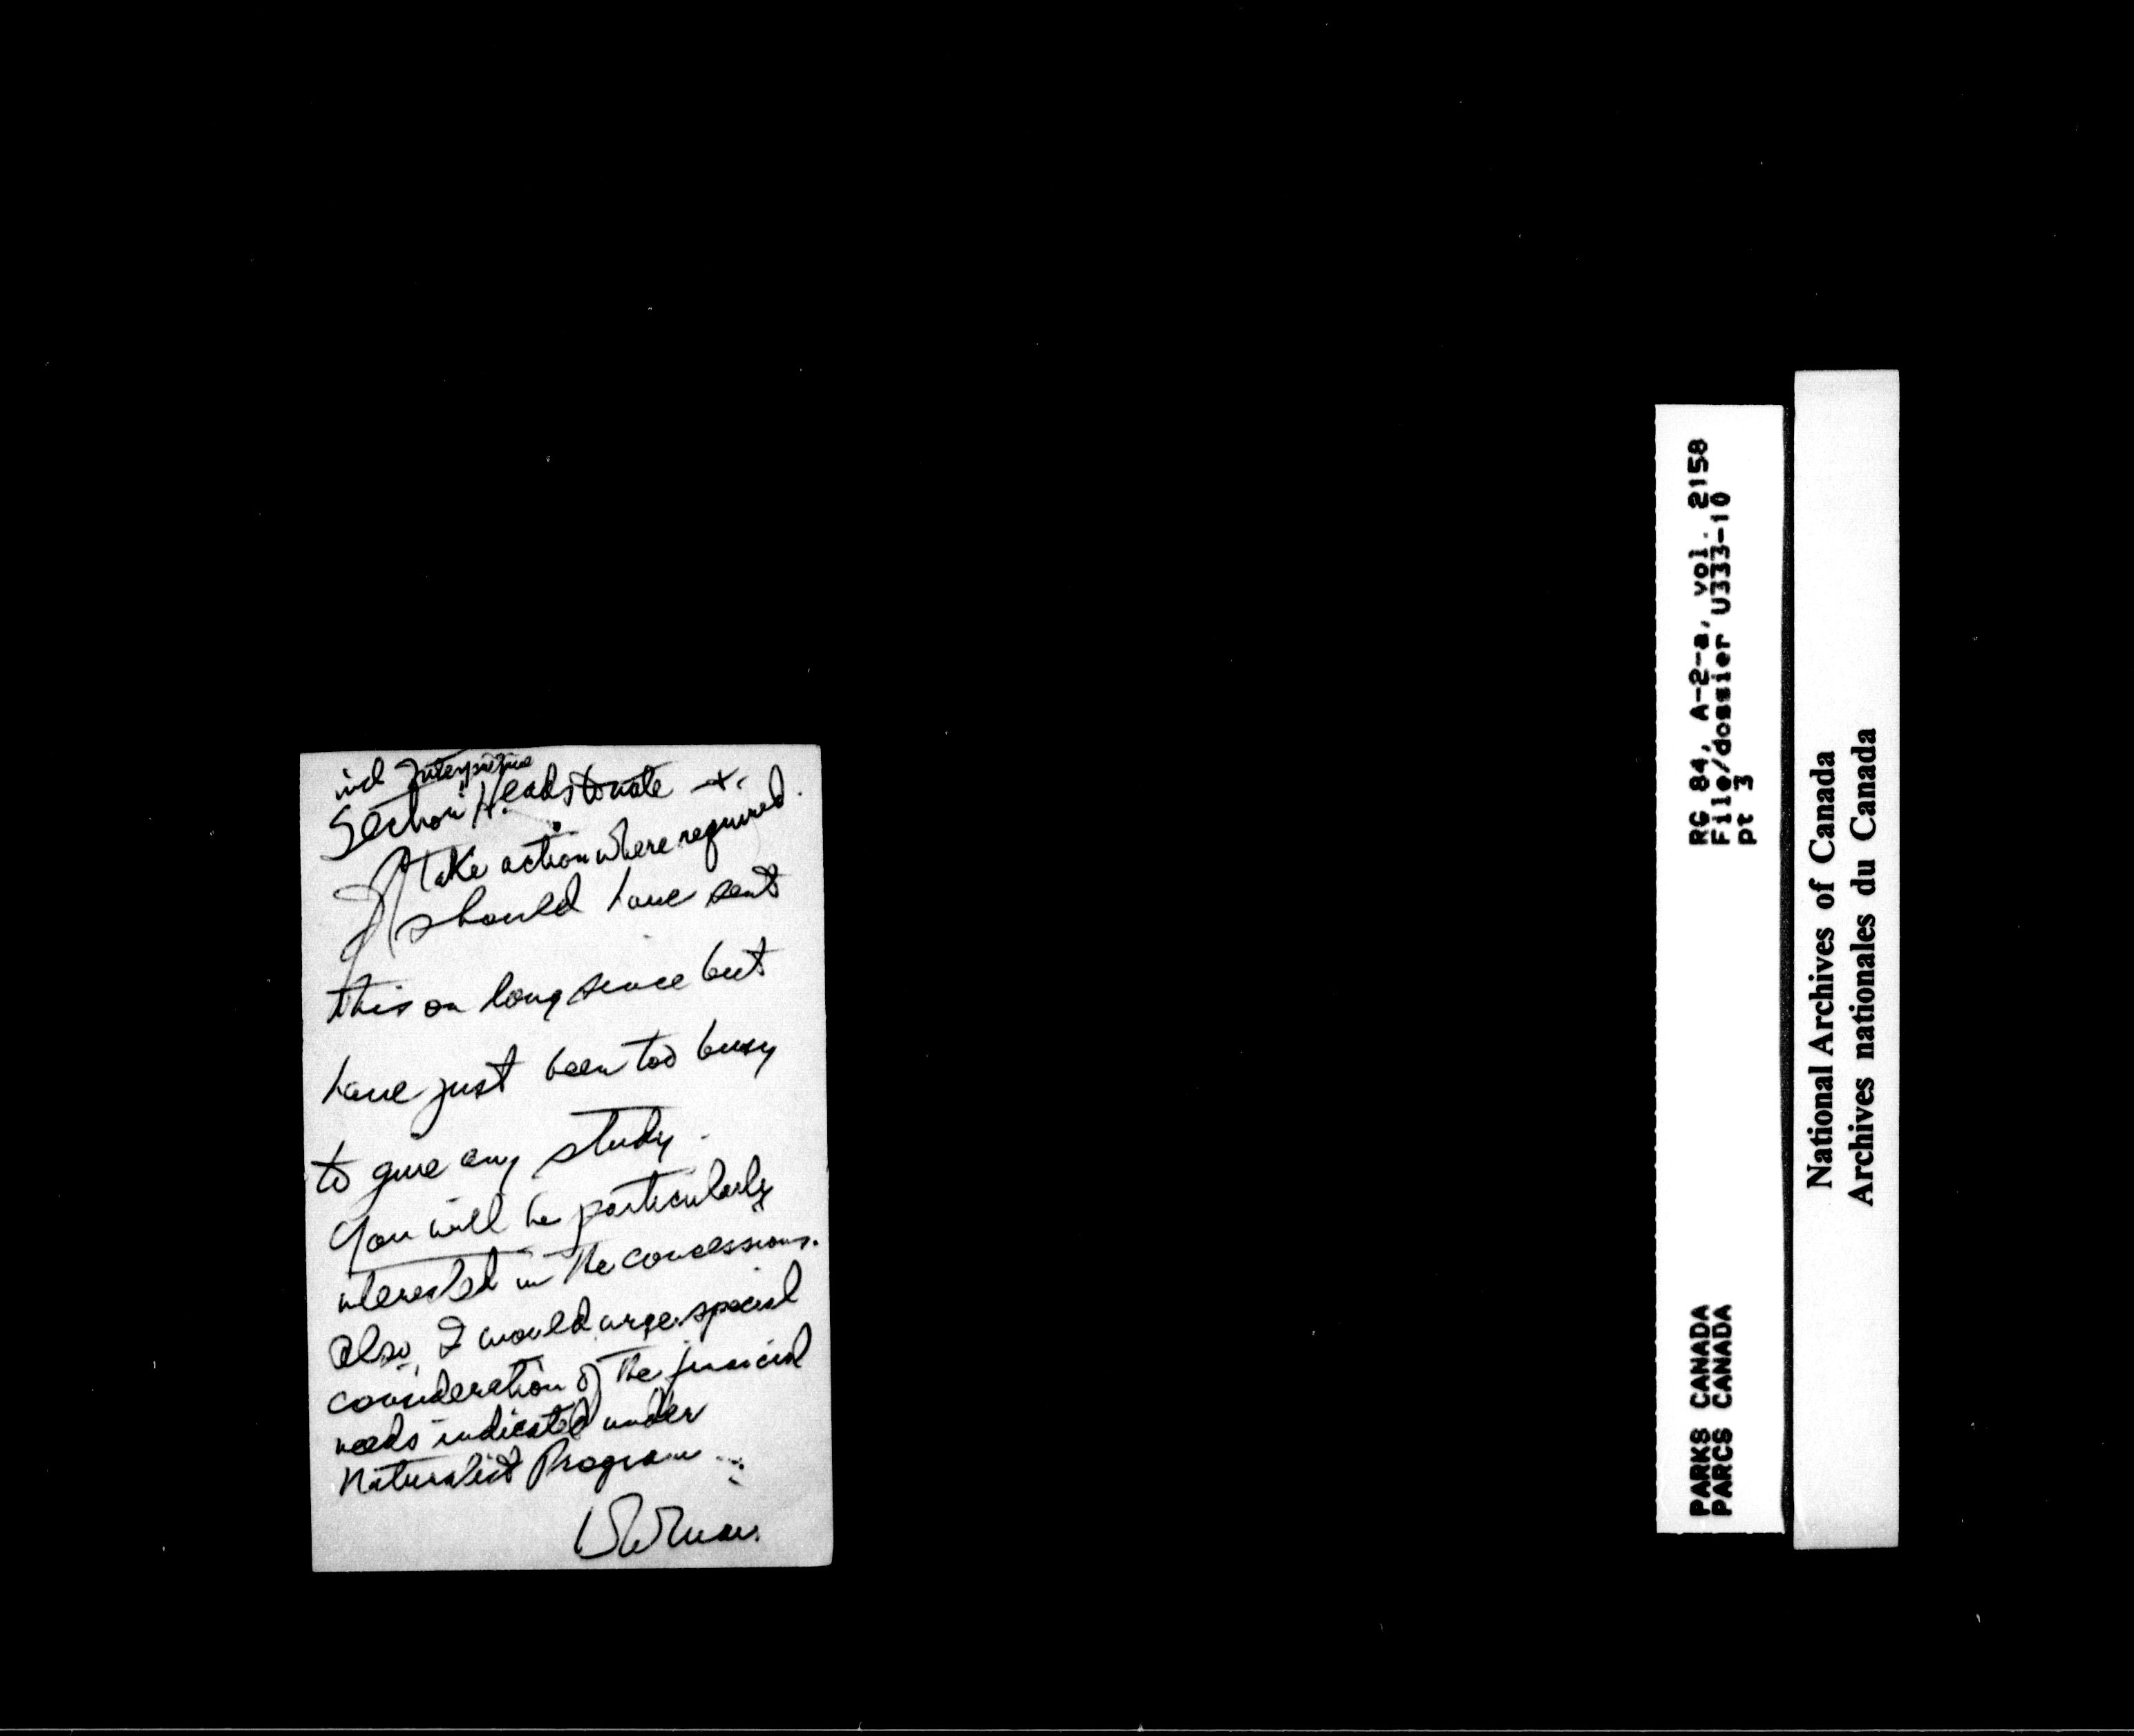 incl Interpretive
Section Heads to note &
take action where required.
I should have sent
this on long since but
have just been too busy
to give any study.
You will be particularly
interested in the concessions.
Also, I would urge special
consideration of the financial
needs indicated under
Naturalist Program
RG 84, A-2-a, vol. 2158
File/dossier U333-10
pt 3
PARKS CANADA
PARCS CANADA
National Archives of Canada
Archives nationales du Canada